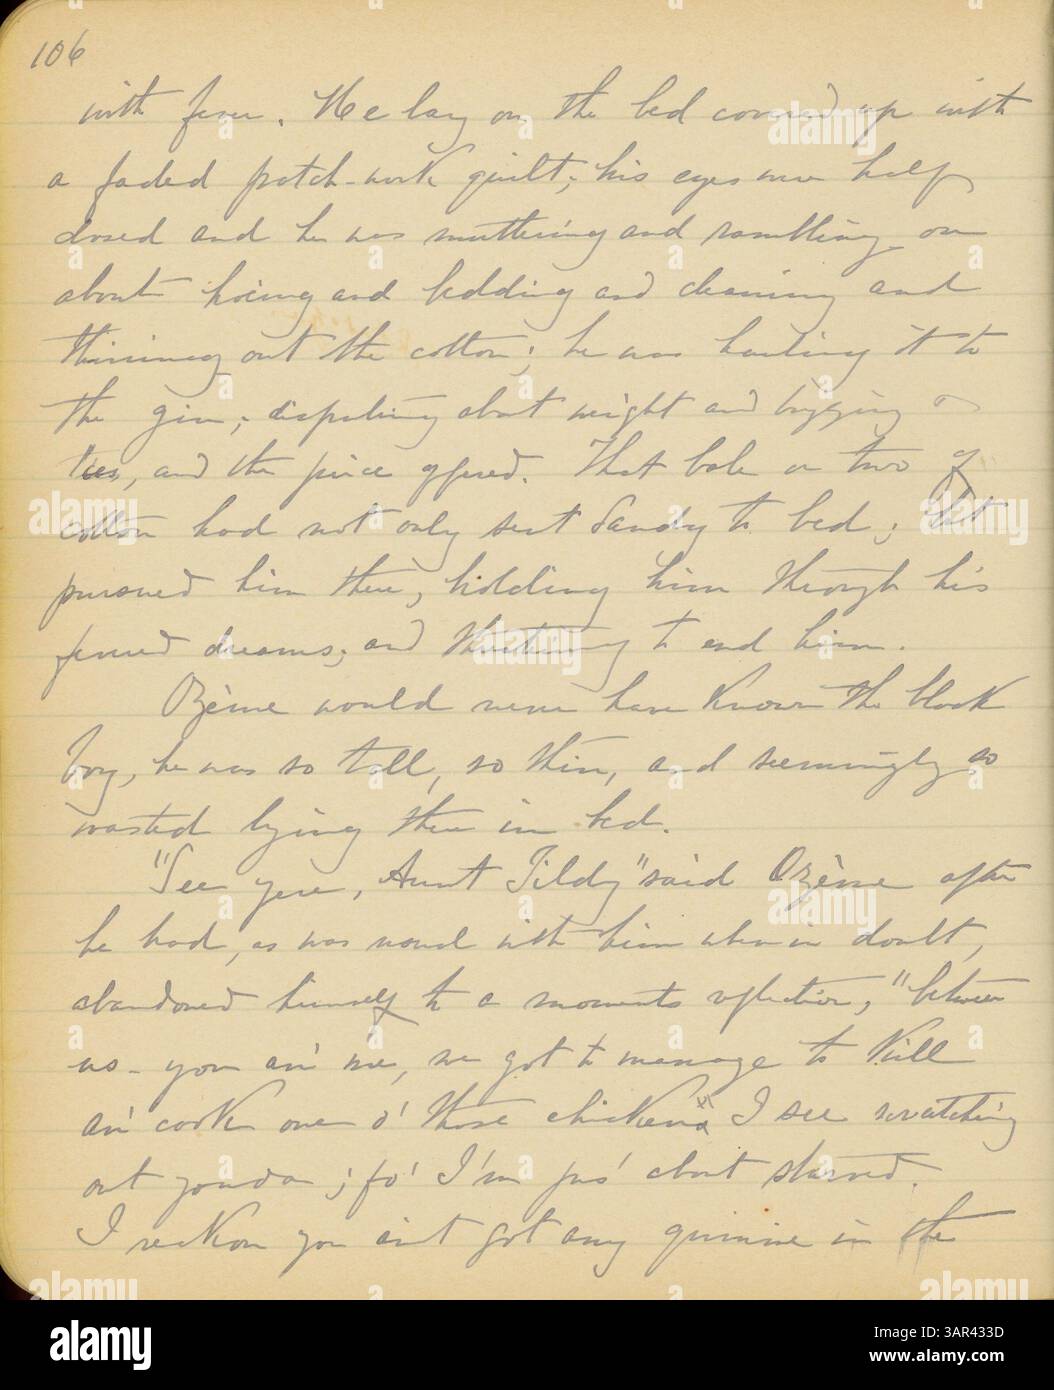 106
with fever. He lay on the bed covered up with
a faded patch-work quilt; his eyes were half
closed and he was muttering and rambling on
about hoeing and bedding and cleaning and
thinning out the cotton; he was hauling it to
the gin; disputing about weight and bagging &
ties, and the price offered. That bale or two of
cotton had not only sent Sandy to bed; but
pursued him there, holding him through his
fevered dreams; and threatening to end him.
Ozème would never have known the black
boy, he was so tall, so thin, and seemingly so
wasted lying there in bed.
"See yere, Aunt Tildy" said Ozème after
he had, as was usual with him when in doubt,
abandoned himself to a moments reflection; "between
us - you an' me, we got to manage to kill
an' cook one o' those chickens I see scratching
out yonda; fo' I'm jus' about starved.
I reckon you ain't got any quinine in the
alamy
Image ID: 3AR433D
www.alamy.com